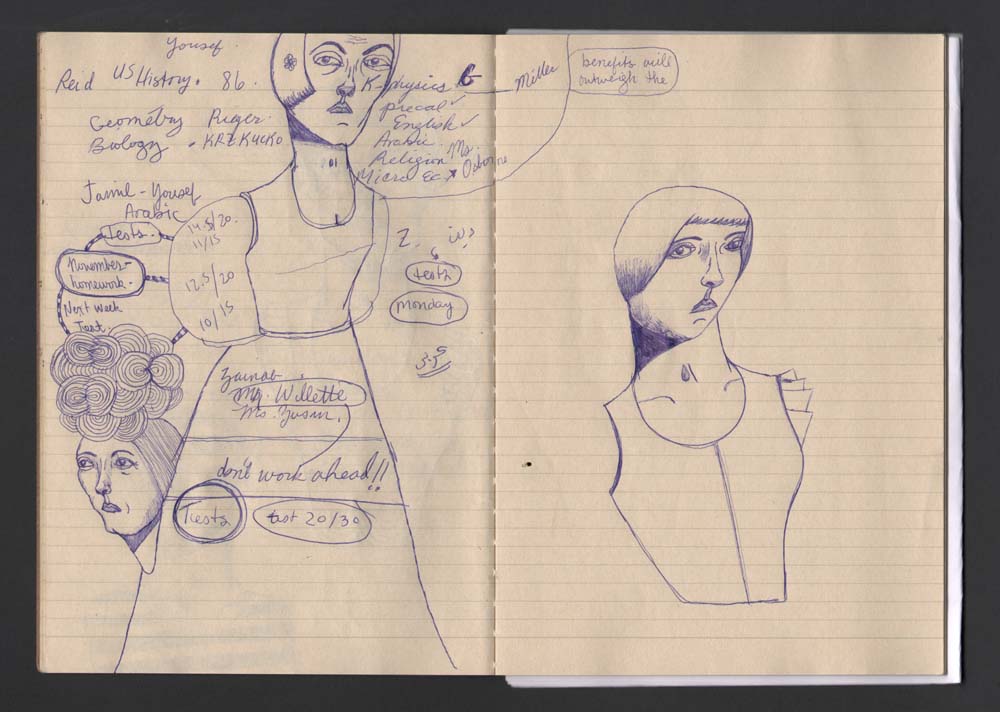 Yousef
Reid US History. 86.
Geometry Ruger.
Biology • KRZKUCKO
K-physics
Miller
benefits will
outweigh the
precal ✓
English ✓
Arabic
Religion Ms.
Micro Ec Osborne
Jamil - Yousef
Arabic
tests.
November-
homework.
Next Week
Test.
14.5/20.
11/15
12.5/20
10/15
2.
tests
Monday
3.5
Zainab
Ms. Willette
Ms.
don't work ahead!!
Tests
test 20/30